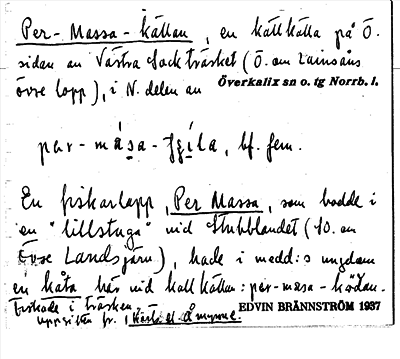 Per-Massa-källan, en kallkälla på Ö.
sidan av Västra Sockträsket (Ö. om Lainsåns
övre lopp), i N. delen av Överkalix sn o. tg Norrb. l.
par-mása-, bf. fem.
En fiskarlapp, Per Massa, som bodde i
en "lillstuga" vid Stubblandet (SO. om
Övre Landsjärv), hade i medd:s ungdom
en kåta här vid kallkällan: par-masa-
fiskade i träsken.
uppgiften fr. EDVIN BRÄNNSTRÖM 1937